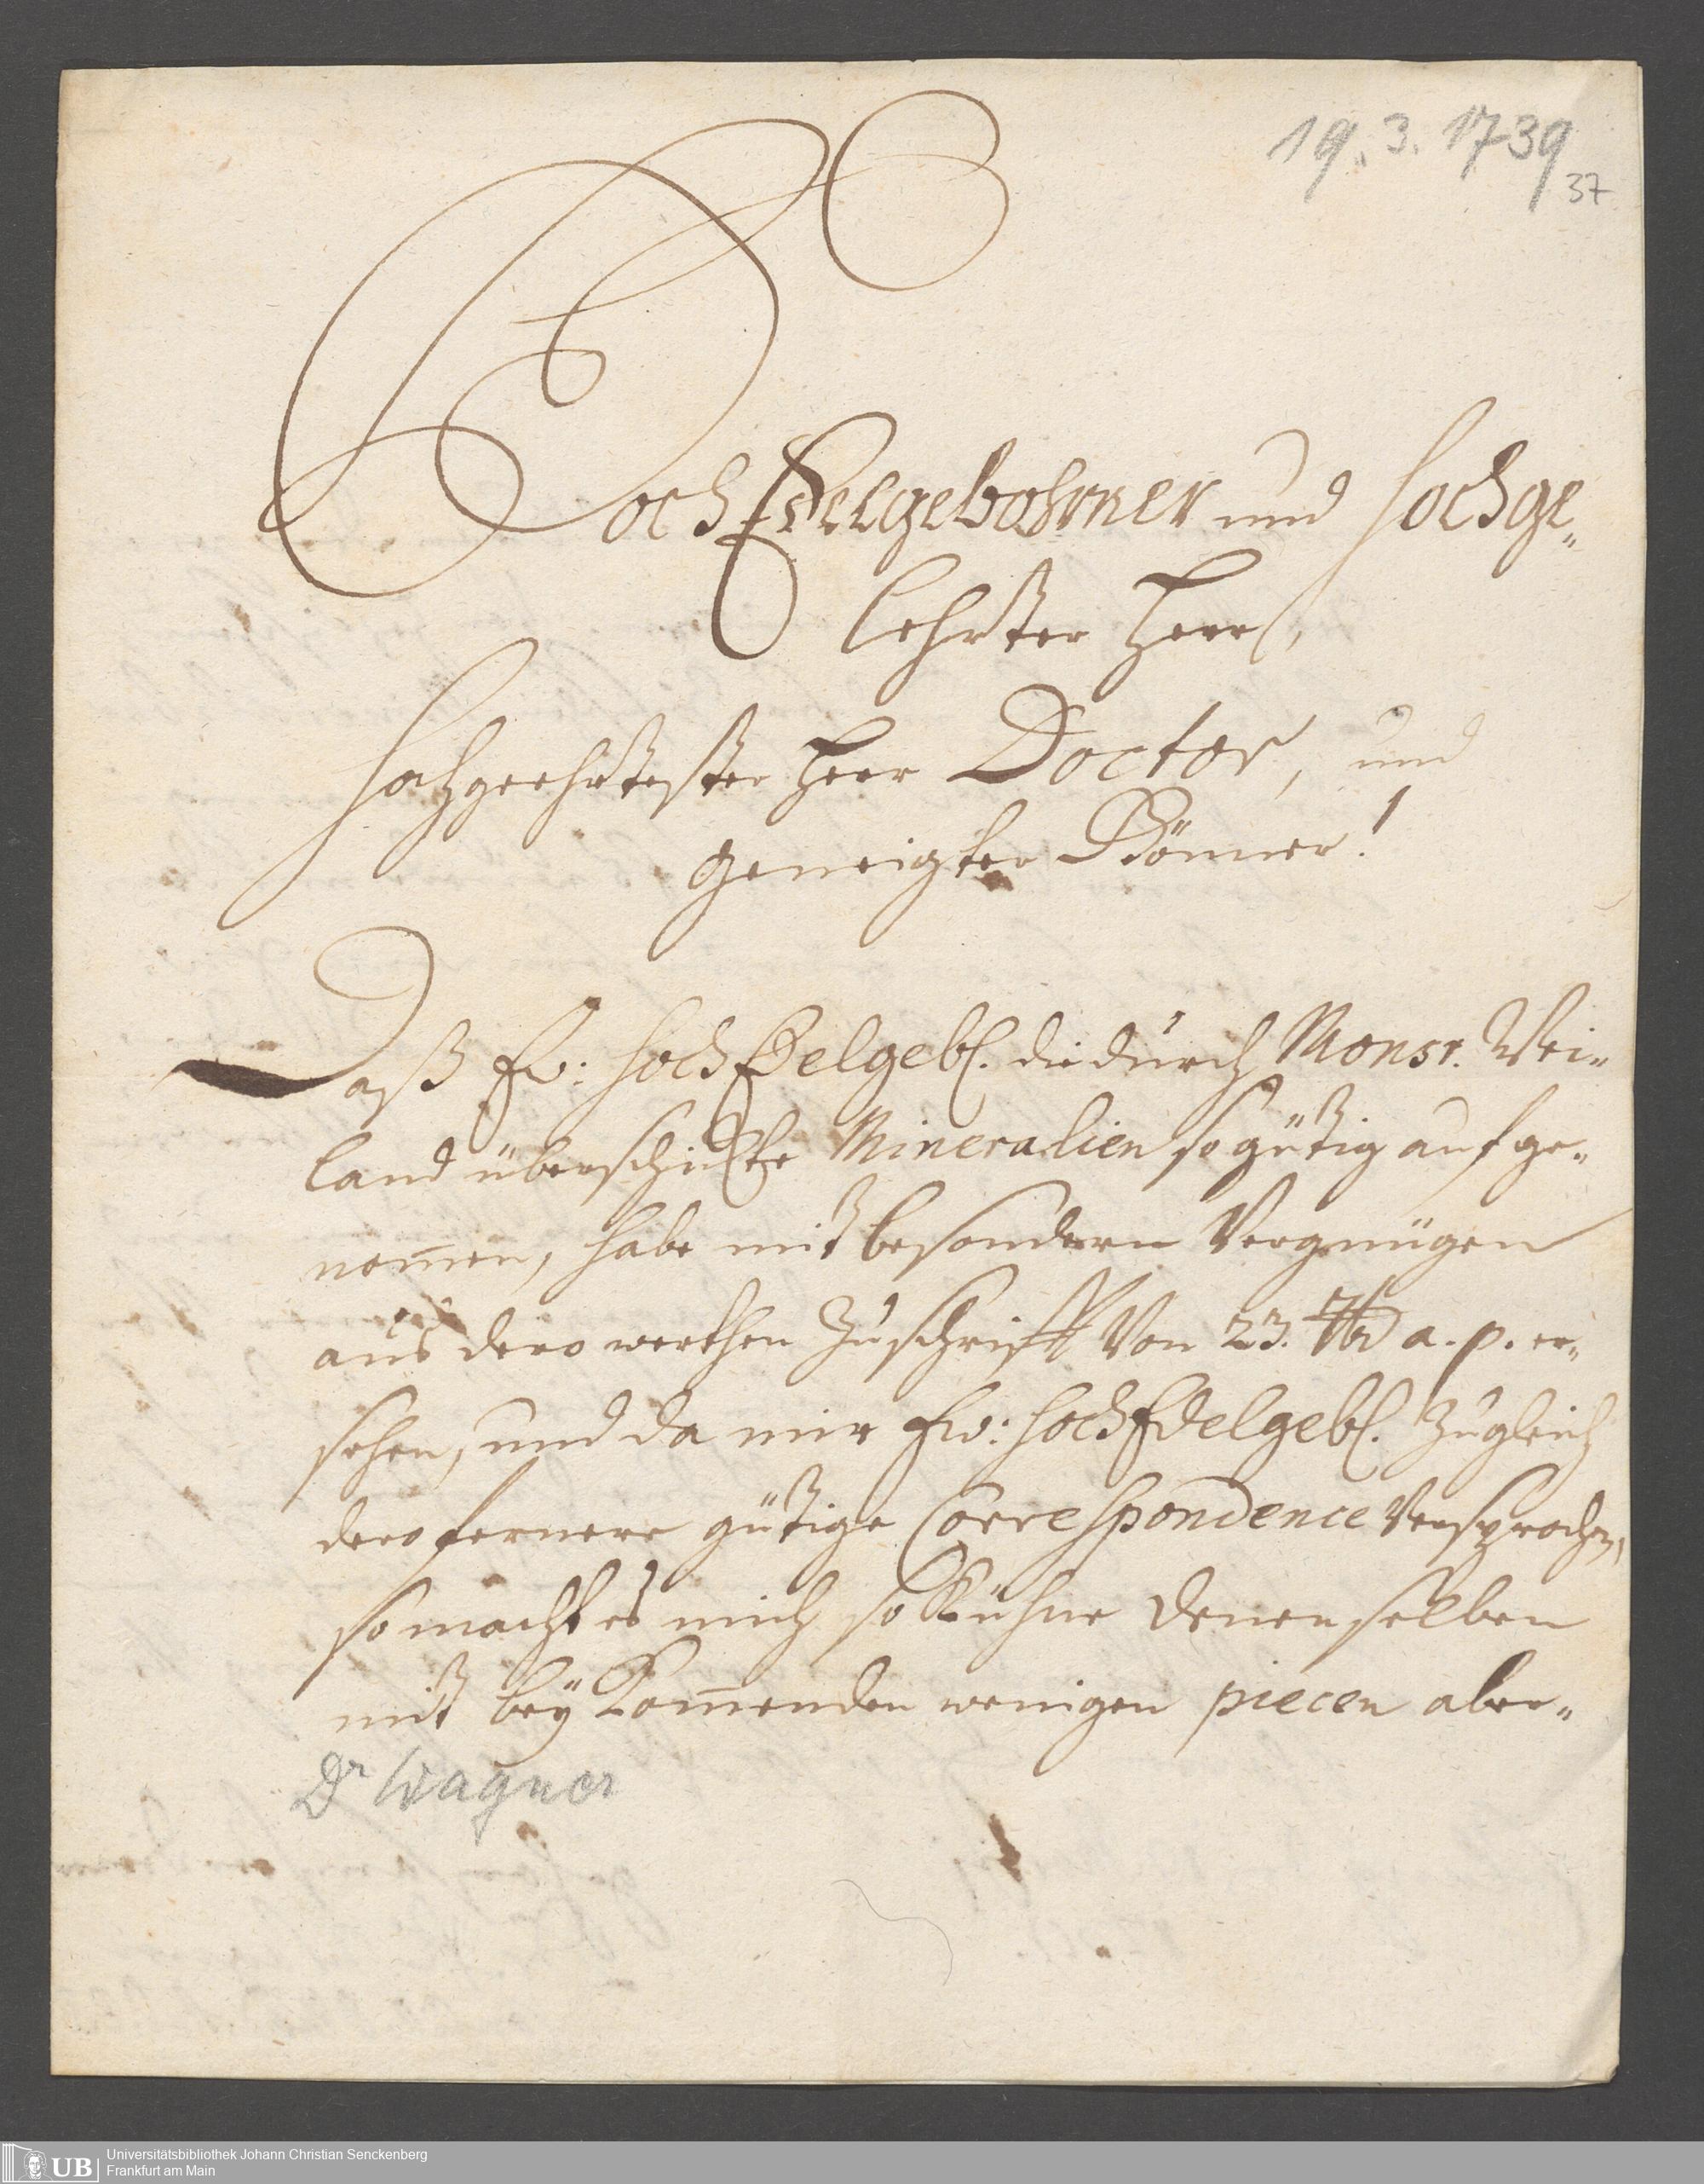 19. 3. 1739
37
HochEdelgebohrner und Hochge„
lehrter Herr,
Hochgeehrtester Herr Doctor, und
geneigter Gönner!
Daß Ew: HochEdelgebl. die durch Monsr. Wei„
land überschickte Mineralien so gütig aufge„
nom̄en, habe mit besondern Vergnügen
aus dero werthen Zuschrifft von 23. 7br a. p. er„
sehen, und da mir Ew: HochEdelgebl. zugleich
dero fernere gütige Correspondence versprochen,
so macht es mich so kühne denenselben
mit beykom̄enden wenigen piecen aber„
Dr Wagner
UB Universitätsbibliothek Johann Christian Senckenberg
Frankfurt am Main